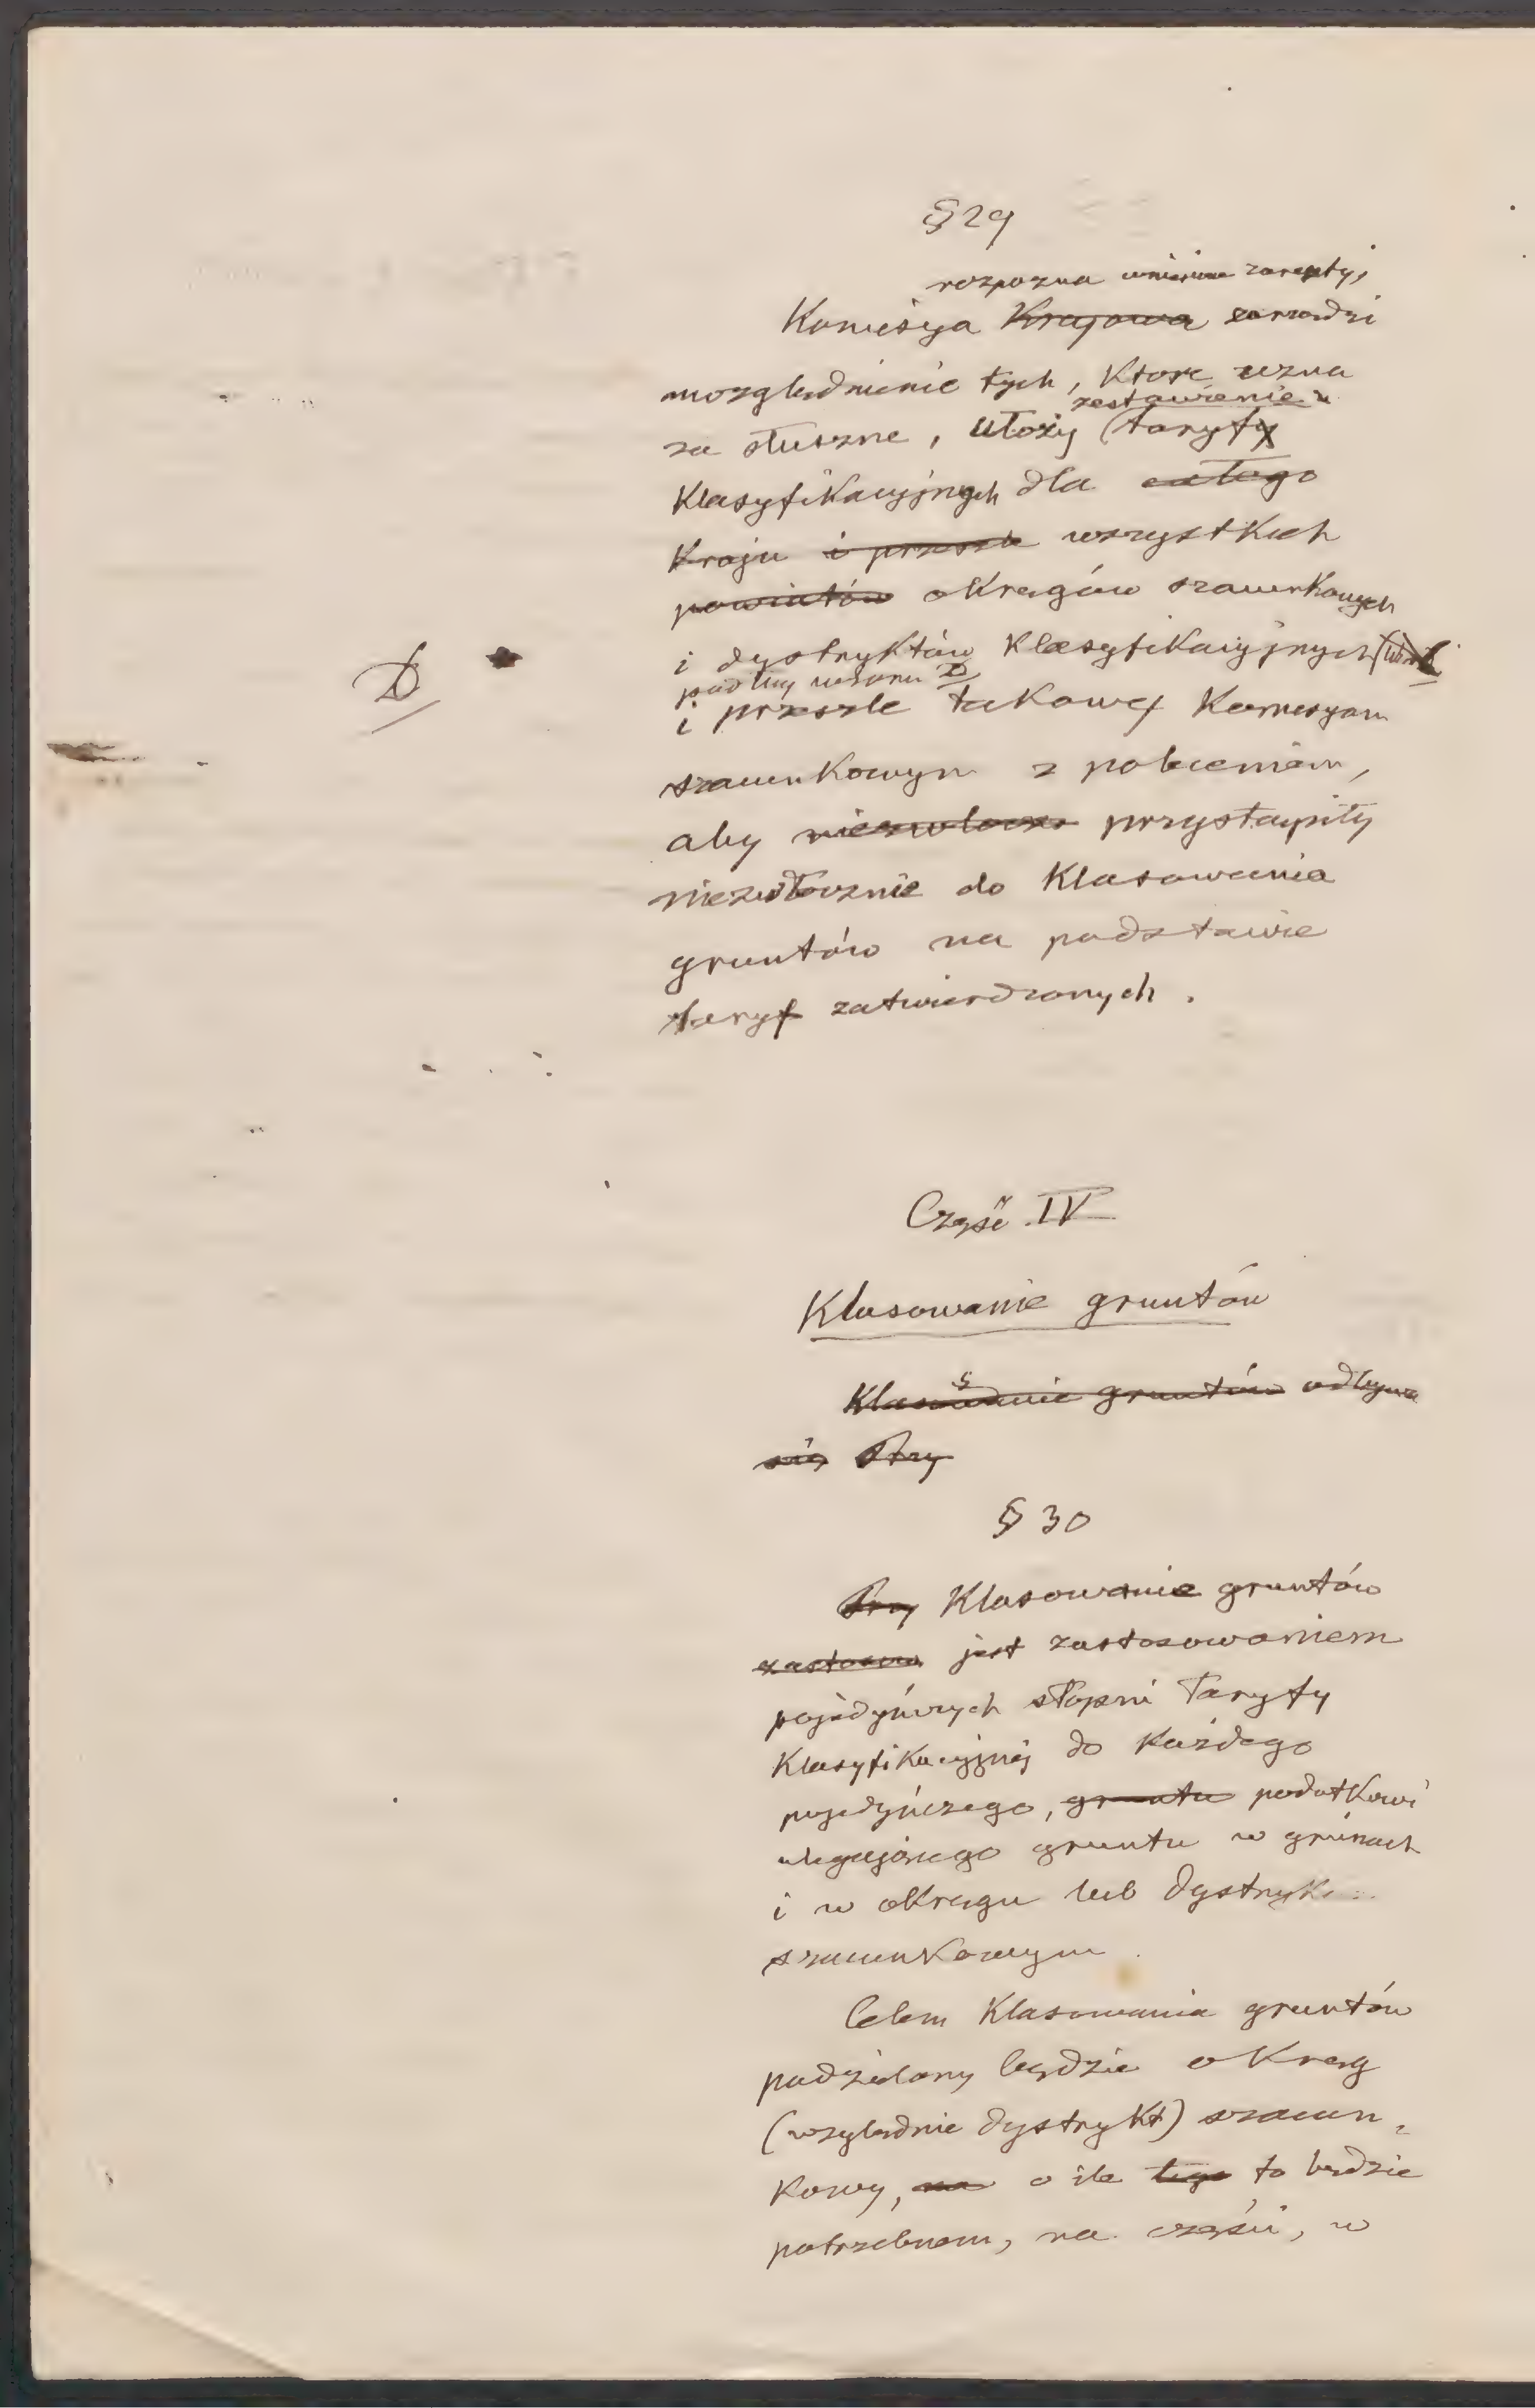 § 29
rozpozna wniesione zarzuty,
Komisya Krajowa zarządzi
uwzględnienie tych, które uzna
zestawienie
za słuszne, ułoży (taryfy
Klasyfikacyjnych dla całego
Kraju i prześle wszystkich
powiatów okręgów szacunkowych
i dystryktów Klasyfikacyjnych
podług wzoru D
i prześle takowej Komisyom
D
szacunkowym z poleceniem,
aby niezwłoczn przystąpiły
niezwłocznie do Klasowania
gruntów na podstawie
taryf zatwierdzonych.
Część IV
Klasowanie gruntów
§
Klasowanie gruntów odbywa
się Przy
§ 30
Przy Klasowanie gruntów
zastosow jest zastosowaniem
pojedyńczych stopni Taryfy
Klasyfikacyjnej do Każdego
pojedyńczego, gruntu podatkowi
ulegającego gruntu w gminach
i w okręgu lub dystryk
szacunkowym.
Celem Klasowania gruntów
podzielony będzie okręg
(względnie dystrykt) szacun-
kowy, na o ile tego to będzie
potrzebnem, na części, w